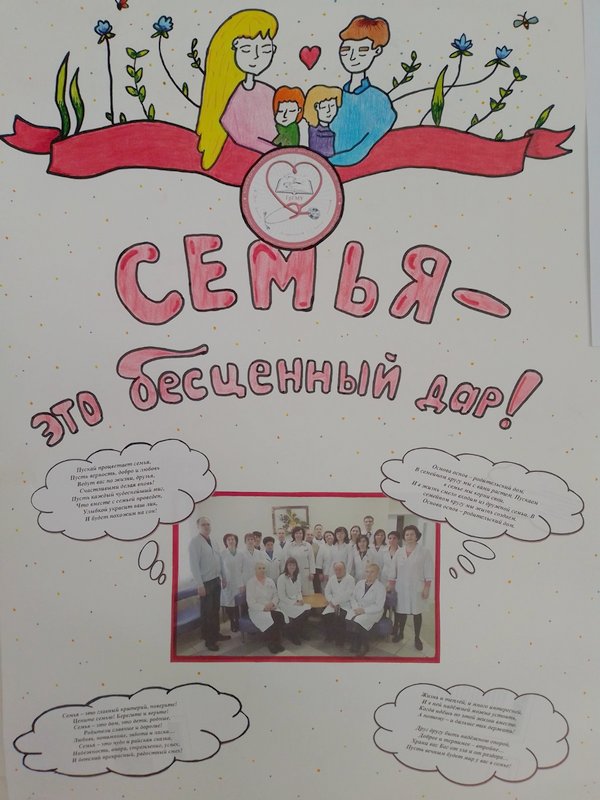 ГрГМУ
СЕМЬЯ-
это бесценный дар!
Пускай процветает семья,
Пусть верность, добро и любовь
Ведут вас по жизни, друзья,
Счастливыми делая вновь!
Пусть каждый чудеснейший миг,
Что вместе с семьей проведен,
Улыбкой украсит ваш лик,
И будет похожим на сон!
Основа основ – родительский дом.
В семейном кругу мы с вами растем. Пускаем
в семье мы корни свои.
И в жизнь смело входим из дружной семьи. В
семейном кругу мы жизнь создаем,
Основа основ – родительский дом.
Семья – это главный критерий, поверьте!
Цените семью! Берегите и верьте!
Семья – это дом, это дети, родные,
Родители славные и дорогие!
Любовь, понимание, забота и ласка...
Семья – это чудо и райская сказка,
Надежность, опора, стремленье, успех,
И детский прекрасный, радостный смех!
Жизнь и теплей, и много интересней,
И в ней надёжней можно устоять,
Когда идёшь по этой жизни вместе.
А потому – и дальше так держать!
Друг другу быть надёжною опорой,
Добрее и терпимее – впредь...
Храни вас Бог от зла и от раздора...
Пусть вечным будет мир у вас в семье!